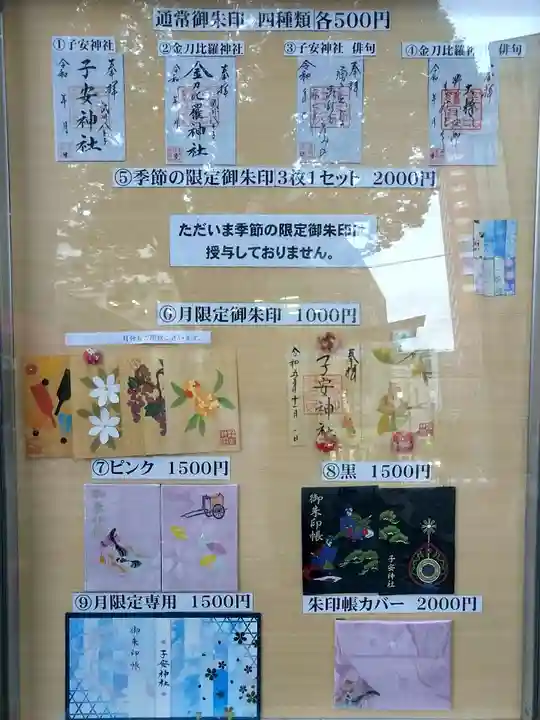 通常御朱印 四種類 各500円
①子安神社
②金刀比羅神社
③子安神社 俳句
④金刀比羅神社 俳句
奉拝
子安神社
令和 年 月
奉拝
金刀比羅神社
令和
奉拝
令和
奉拝
⑤季節の限定御朱印3枚1セット 2000円
ただいま季節の限定御朱印は
授与しておりません。
⑥月限定御朱印 1000円
奉拝
子安神社
令和五年十一月一日
⑦ピンク 1500円
⑧黒 1500円
御朱印帳
御朱印帳
子安神社
⑨月限定専用 1500円
朱印帳カバー 2000円
御朱印帳
子安神社